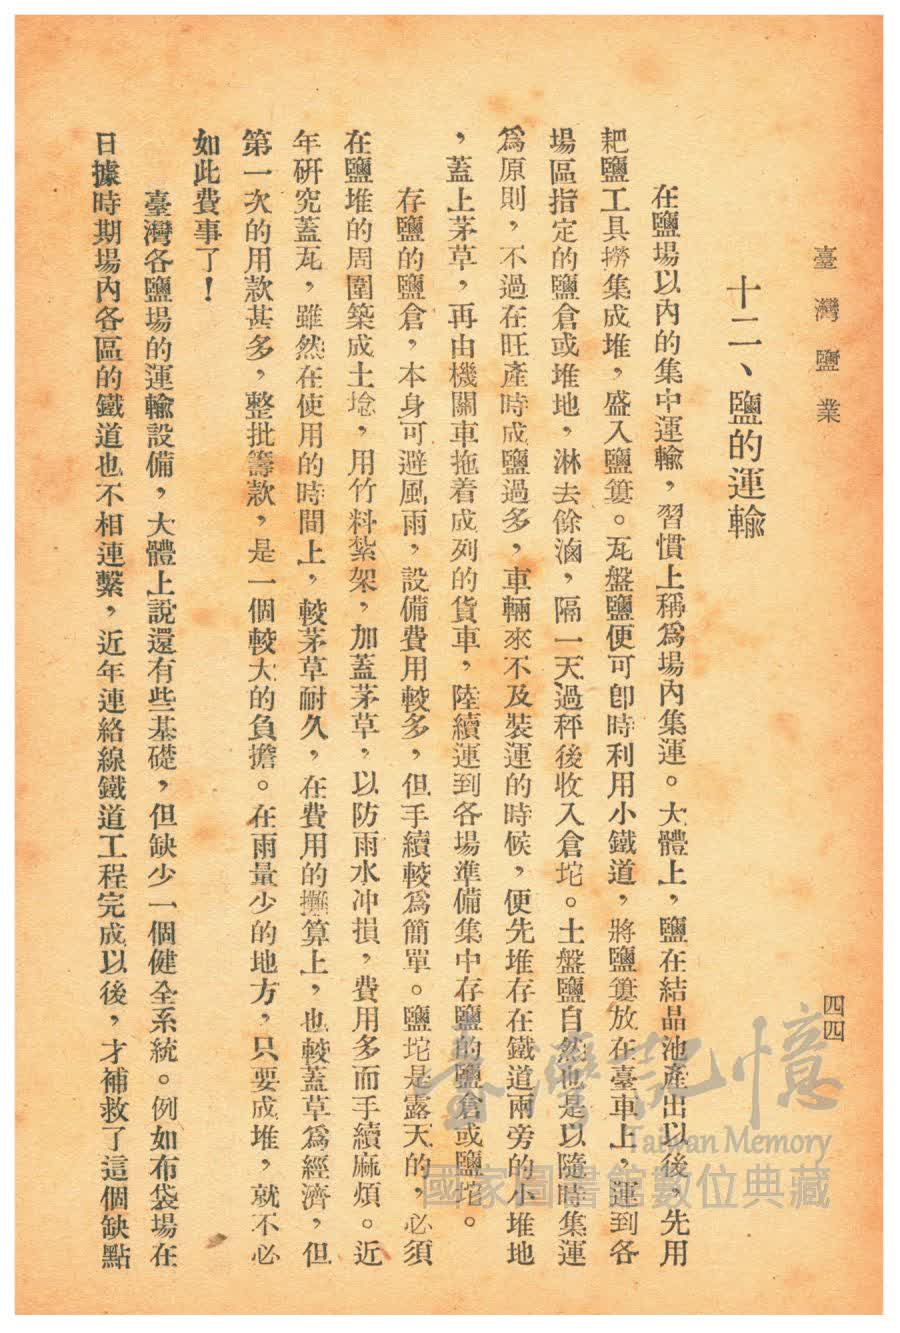 臺灣鹽業
四四
十二、鹽的運輸
在鹽場以內的集中運輸，習慣上稱爲場內集運。大體上，鹽在結晶池產出以後，先用
耙鹽工具撈集成堆，盛入鹽簍。瓦盤鹽便可卽時利用小鐵道，將鹽簍放在臺車上，運到各
場區指定的鹽倉或堆地，淋去餘滷，隔一天過秤後收入倉坨。土盤鹽自然也是以隨時集運
爲原則，不過在旺產時成鹽過多，車輛來不及裝運的時候，便先堆存在鐵道兩旁的小堆地
，蓋上茅草，再由機關車拖着成列的貨車，陸續運到各場準備集中存鹽的鹽倉或鹽坨。
存鹽的鹽倉，本身可避風雨，設備費用較多，但手續較爲簡單。鹽坨是露天的，必須
在鹽堆的周圍築成土埝，用竹料紮架，加蓋茅草，以防雨水冲損，費用多而手續麻煩。近
年硏究蓋瓦，雖然在使用的時間上，較茅草耐久，在費用的攤算上，也較蓋草爲經濟，但
第一次的用款甚多，整批籌款，是一個較大的負擔。在雨量少的地方，只要成堆，就不必
如此費事了！
臺灣各鹽場的運輸設備，大體上說還有些基礎，但缺少一個健全系統。例如布袋場在
日據時期場內各區的鐵道也不相連繫，近年連絡線鐵道工程完成以後，才補救了這個缺點
臺灣記憶
Taiwan Memory
國家圖書館數位典藏